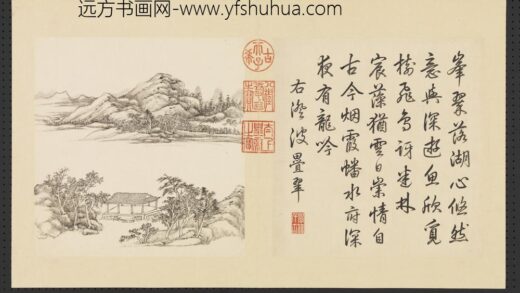 远方书画网-www.yfshuhua.com
峯翠落湖心悠然
意與深遊魚欣
樹飛鳥訝迷林
宸藻猶雲日崇情自
古今烟霞蟠水府深
夜有龍吟
右澄波疊翠